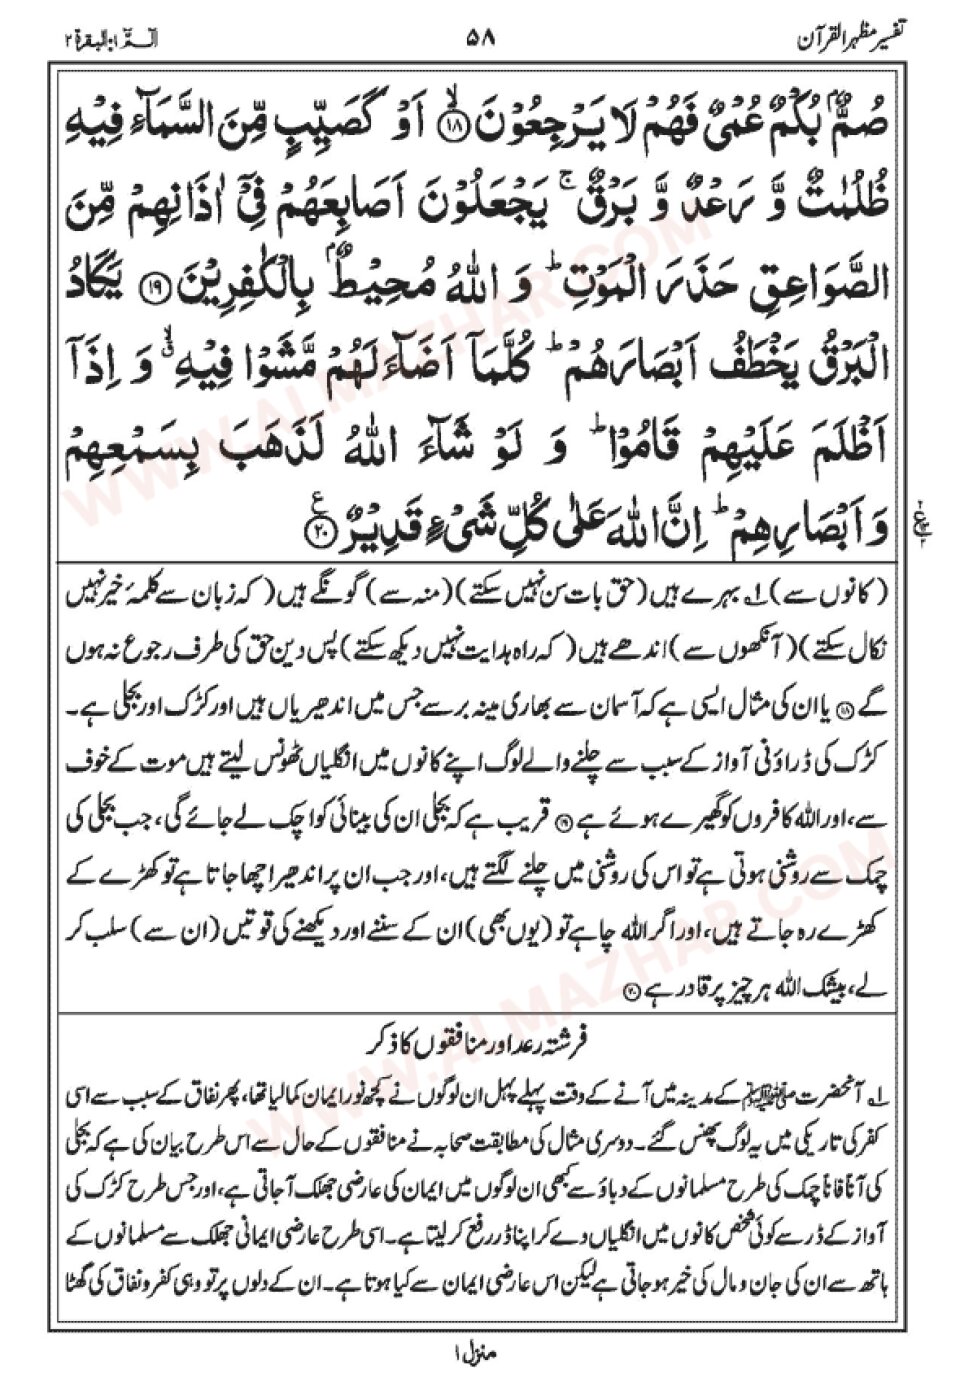 تفسیر مظہر القرآن ۵۸ الٓمّٓ ۱: البقرۃ ۲
صُمٌّۢ بُكْمٌ عُمْیٌ فَهُمْ لَا یَرْجِعُوْنَ ﴿۱۸﴾ۙ اَوْ كَصَیِّبٍ مِّنَ السَّمَآءِ فِیْهِ
ظُلُمٰتٌ وَّ رَعْدٌ وَّ بَرْقٌ ۚ یَجْعَلُوْنَ اَصَابِعَهُمْ فِیْۤ اٰذَانِهِمْ مِّنَ
الصَّوَاعِقِ حَذَرَ الْمَوْتِ ؕ وَ اللّٰهُ مُحِیْطٌۢ بِالْكٰفِرِیْنَ ﴿۱۹﴾ یَكَادُ
الْبَرْقُ یَخْطَفُ اَبْصَارَهُمْ ؕ كُلَّمَاۤ اَضَآءَ لَهُمْ مَّشَوْا فِیْهِ ۙۗ وَ اِذَاۤ
اَظْلَمَ عَلَیْهِمْ قَامُوْا ؕ وَ لَوْ شَآءَ اللّٰهُ لَذَهَبَ بِسَمْعِهِمْ
وَ اَبْصَارِهِمْ ؕ اِنَّ اللّٰهَ عَلٰی كُلِّ شَیْءٍ قَدِیْرٌ ﴿۲۰﴾ ع
(کانوں سے) ۱؎ بہرے ہیں (حق بات سن نہیں سکتے) (منہ سے) گونگے ہیں ( کہ زبان سے کلمۂ خیر نہیں
نکال سکتے) (آنکھوں سے) اندھے ہیں ( کہ راہ ہدایت نہیں دیکھ سکتے) پس دین حق کی طرف رجوع نہ ہوں
گے ﴿۱۸﴾ یا ان کی مثال ایسی ہے کہ آسمان سے بھاری مینہ برسے جس میں اندھیریاں ہیں اور کڑک اور بجلی ہے۔
کڑک کی ڈراؤنی آواز کے سبب سے چلنے والے لوگ اپنے کانوں میں انگلیاں ٹھونس لیتے ہیں موت کے خوف
سے، اور اللہ کافروں کو گھیرے ہوئے ہے ﴿۱۹﴾ قریب ہے کہ بجلی ان کی بینائی کو اچک لے جائے گی، جب بجلی کی
چمک سے روشنی ہوتی ہے تو اس کی روشنی میں چلنے لگتے ہیں، اور جب ان پر اندھیرا چھا جاتا ہے تو کھڑے کے
کھڑے رہ جاتے ہیں، اور اگر اللہ چاہے تو (یوں بھی) ان کے سننے اور دیکھنے کی قوتیں (ان سے) سلب کر
لے، بیشک اللہ ہر چیز پر قادر ہے ﴿۲۰﴾
فرشتہ رعد اور منافقوں کا ذکر
۱؎ آنحضرت صلی اللہ علیہ وسلم کے مدینہ میں آنے کے وقت پہلے پہل ان لوگوں نے کچھ نور ایمان کما لیا تھا، پھر نفاق کے سبب سے اسی
کفر کی تاریکی میں یہ لوگ پھنس گئے۔ دوسری مثال کی مطابقت صحابہ نے منافقوں کے حال سے اس طرح بیان کی ہے کہ بجلی
کی آناً فاناً چمک کی طرح مسلمانوں کے دباؤ سے کبھی ان لوگوں میں ایمان کی عارضی جھلک آ جاتی ہے، اور جس طرح کڑک کی
آواز کے ڈر سے کوئی شخص کانوں میں انگلیاں دے کر اپنا ڈر رفع کر لیتا ہے۔ اسی طرح عارضی ایمانی جھلک سے مسلمانوں کے
ہاتھ سے ان کی جان و مال کی خیر ہو جاتی ہے لیکن اس عارضی ایمان سے کیا ہوتا ہے۔ ان کے دلوں پر تو وہی کفر و نفاق کی گھٹا
منزل ۱
WWW.ALMAZHAR.COM
WWW.ALMAZHAR.COM